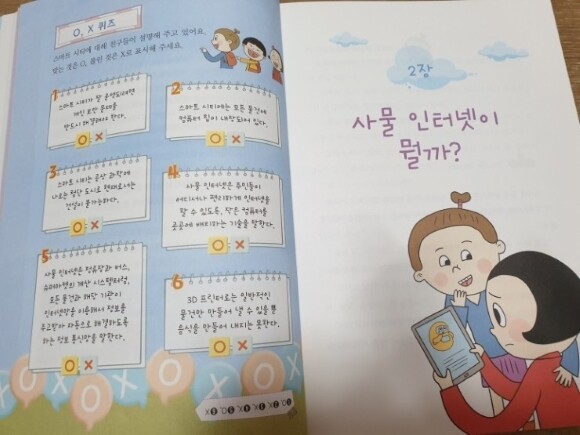 O, X 퀴즈
스마트 시티에 대해 친구들이 설명해 주고 있어요.
맞는 것은 O, 틀린 것은 X로 표시해 주세요.
1
스마트 시티가 잘 운영되려면
개인 보안 문제를
반드시 해결해야 한다.
O X
2
스마트 시티에는 모든 물건에
컴퓨터 칩이 내장되어 있다.
O X
3
스마트 시티는 공상 과학에
나오는 첨단 도시로 현재로서는
건설이 불가능하다.
O X
4
사물 인터넷은 주민들이
어디서나 편리하게 인터넷을
할 수 있도록, 작은 컴퓨터를
곳곳에 배치하는 기술을 말한다.
O X
5
사물 인터넷은 정류장과 버스,
슈퍼마켓의 계산 시스템처럼,
모든 물건과 해당 기관이
인터넷망을 이용해서 정보를
주고받아 자동으로 해결하도록
하는 정보 통신망을 말한다.
O X
6
3D 프린터로는 일반적인
물건만 만들어 낼 수 있을 뿐
음식을 만들어 내지는 못한다.
O X
2장
사물 인터넷이
뭘까?